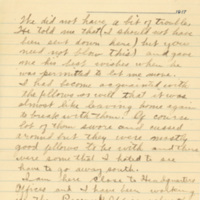 We did not have a bit of trouble.
He told me that (I should not have
been sent down here) but you
need not blow this) and gave
me his best wishes when he
was permitted to let me more.
I had become acquainted with
the fellows so well that it was
almost like leaving home again
to break with them. Of course
lot of them swore and messed
around but they were mostly
good fellows to be with and there
were some that I hated to see
have to go away south.
I am here close to Headquarters
Offices and I have been working